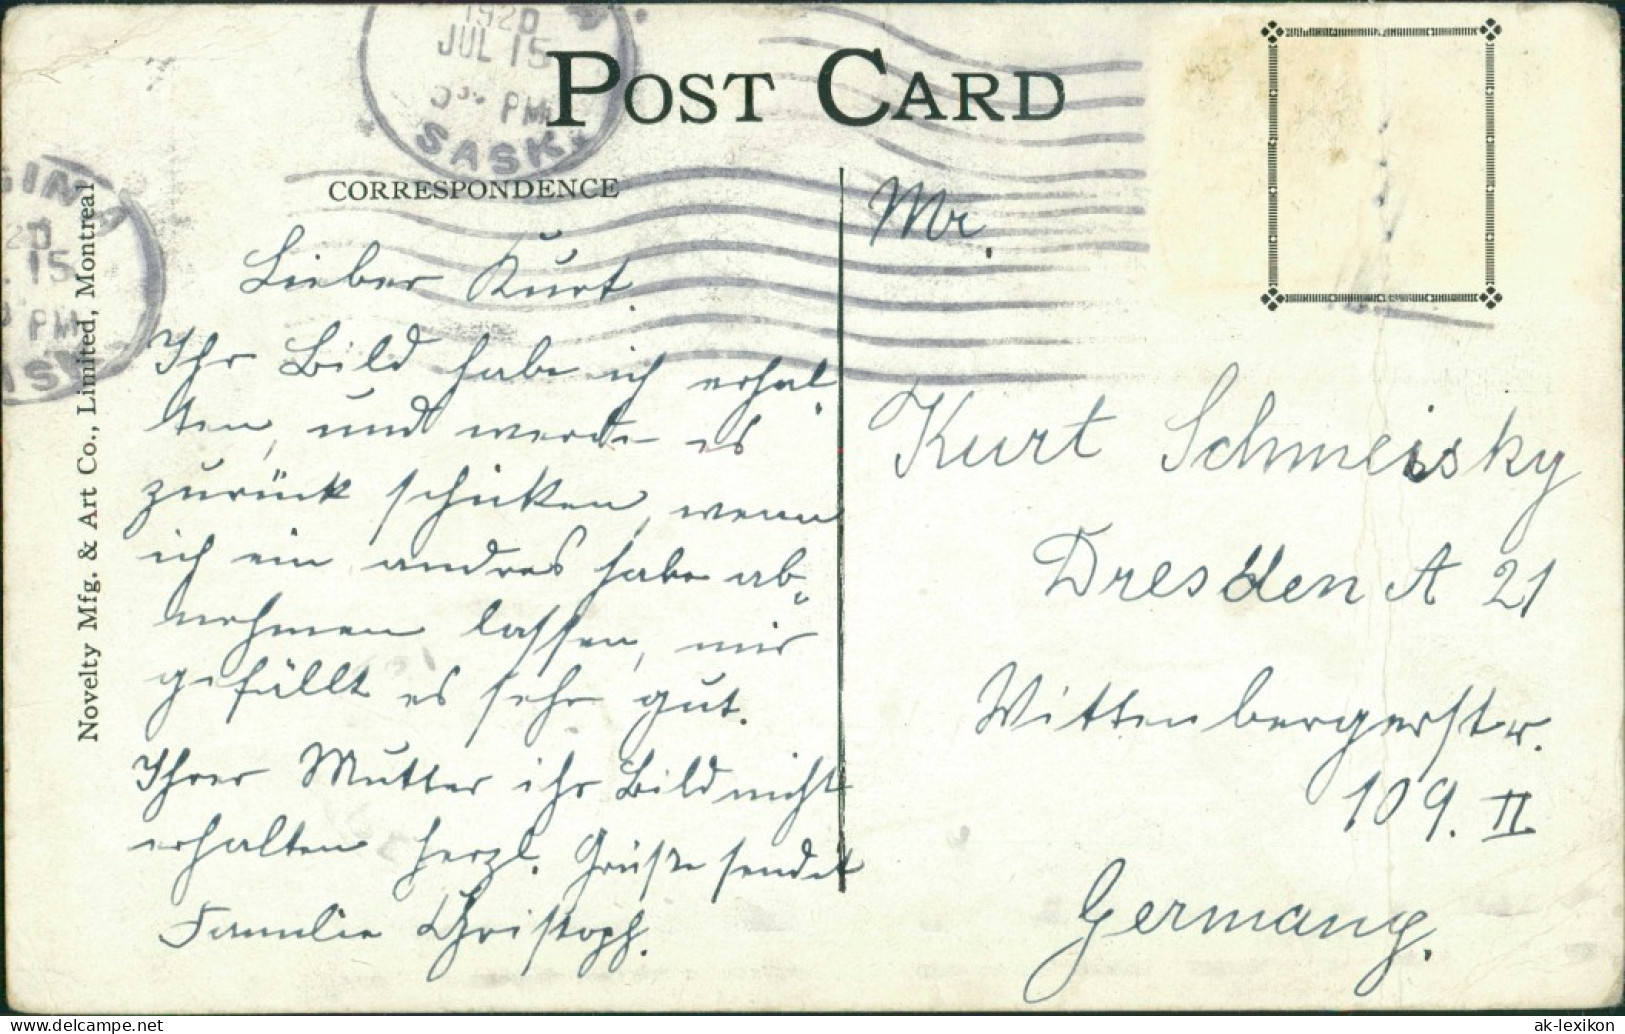 1920
JUL 15
PM
SASK.
POST CARD
GINA
15
PM
CORRESPONDENCE
Novelty Mfg. & Art Co., Limited, Montreal
Lieber Kurt
Ihr Bild habe ich erhal
ten, und werde es
zurück schicken, wenn
ich ein andres habe ab"
nehmen lassen, mir
gefällt es sehr gut.
Ihrer Mutter ihr Bild nicht
erhalten herzl. Grüße sendet
Familie Christoph.
Mr.
Kurt Schmeisky
Dresden A 21
Wittenbergerstr.
109. II
Germany.
ak-lexikon
www.delcampe.net